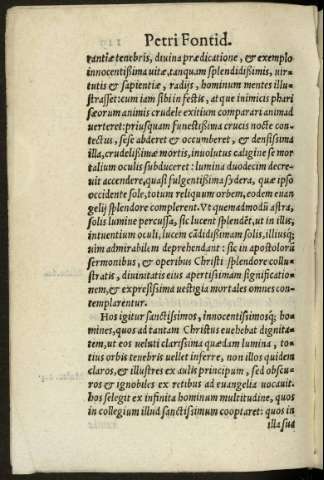 Petri Fontid.
rantiæ tenebris, diuina prædicatione, & exemplo
innocentißima uitæ, tanquam splendidißimis, uir-
tutis & sapientiæ, radijs, hominum mentes illu-
strasset: cum iam sibi infestis, atque inimicis phari
sæorum animis crudele exitium comparari animad
uerteret: priusquam funestißima crucis nocte con-
tectus, sese abderet & occumberet, & densißima
illa, crudelißimæ mortis, inuolutus caligine se mor
talium oculis subduceret: lumina duodecim decre-
uit accendere, quasi fulgentißima sydera, quæ ipso
occidente sole, totum reliquum orbem, eodem euan
gelij splendore complerent. Vt quemadmodũ astra,
solis lumine percussa, sic lucent splendẽt, ut in illis,
intuentium oculi, lucem cãdidißimam solis, illiusq;
uim admirabilem deprehendant: sic in apostolorũ
sermonibus, & operibus Christi splendore collu-
stratis, diuinitatis eius apertißimam significatio-
nem, & expreßißima uestigia mortales omnes con-
templarentur.
Hos igitur sanctißimos, innocentißimosq; ho-
mines, quos ad tantam Christus euehebat dignita-
tem, ut eos ueluti clarißima quædam lumina, to-
tius orbis tenebris uellet inferre, non illos quidem
claros, & illustres ex aulis principum, sed obscu-
ros & ignobiles ex retibus ad euangelia uocauit.
hos selegit ex infinita hominum multitudine, quos
in collegium illud sanctissimum cooptaret: quos in
illa sud